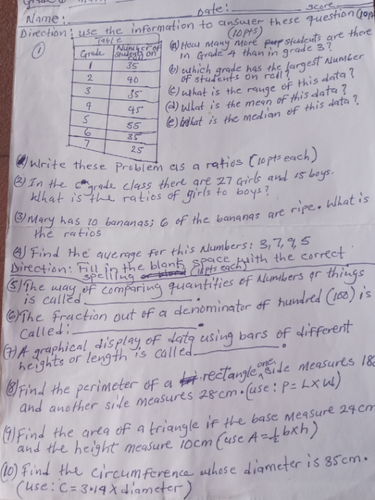 Name: Date: score
Direction: use the information to answer these question (10pts)
(1)
Table
Grade Number of students on roll
1 35
2 40
3 35
4 45
5 55
6 35
7 25
(10pts)
(a) How many more students are there
in Grade 4 than in grade 3?
(b) which grade has the largest Number
of students on roll?
(c) what is the range of this data?
(d) What is the mean of this data?
(e) What is the median of this data?
Write these Problem as a ratios (10pts each)
(2) In the grade class there are 27 Girls and 15 boys.
What is the ratios of girls to boys?
(3) Mary has 10 bananas; 6 of the bananas are ripe. What is
the ratios
(4) Find the average for this Numbers: 3, 7, 9, 5
Direction: Fill in the blank space with the correct
spelling (10pts each)
(5) The way of comparing quantities of Numbers or things
is called .
(6) The fraction out of a denominator of hundred (100) is
called: .
(7) A graphical display of data using bars of different
heights or length is called .
(8) Find the perimeter of a rectangle one side measures
and another side measures 28cm. (use: P = L x W)
(9) Find the area of a triangle if the base measure 24cm
and the height measure 10cm (use A = ½ b x h)
(10) Find the circumference whose diameter is 35cm.
(use: C = 3.14 x diameter)